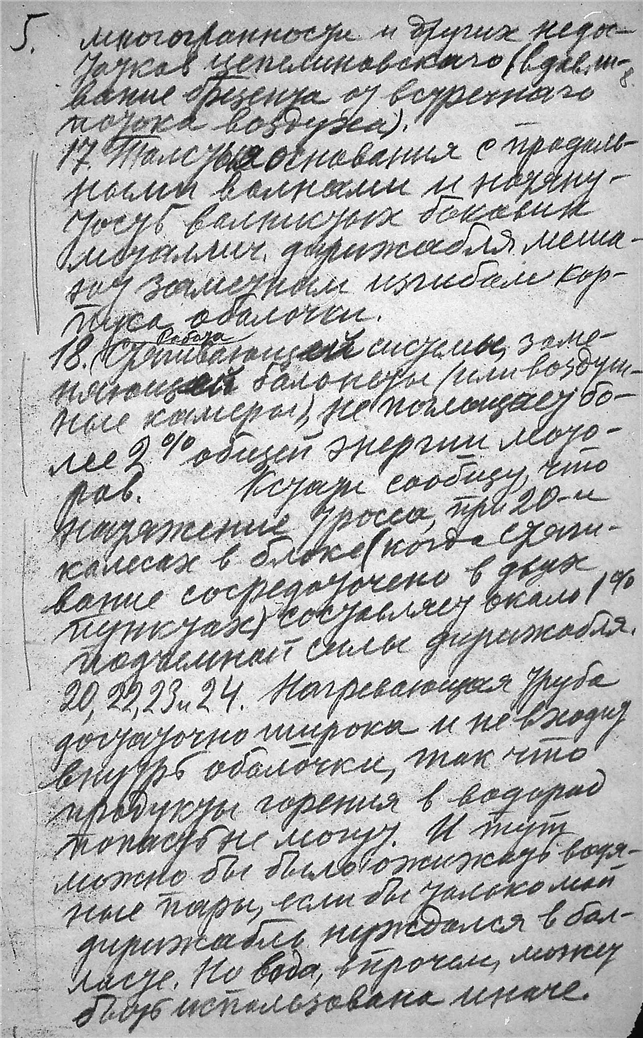 5. многогранности и других недо-
статков цепелиновского (вдавли-
вание брезента от встречного
потока воздуха).
17 Толстые основания с продоль-
ными волнами и натяну-
тость волнистых боковин
металлич. дирижабля меша-
ют заметным изгибам кор-
пуса оболочки.
Работа
18. Стягивающей системы, заме-
няющей балонеты (или воздуш-
ные камеры), не поглощает бо-
лее 2% общей энергии мото-
ров. Кстати сообщу, что
натяжение тросса, при 20-и
колесах в блоке (когда стяги-
вание сосредоточено в двух
пунктах) составляет около 1%
подъемной силы дирижабля.
20, 22, 23 и 24. Нагревающая труба
достаточно широка и не входит
внутрь оболочки, так что
продукты горения в водород
попасть не могут. И тут
можно бы было ожижать водя-
ные пары, если бы только мой
дирижабль нуждался в бал-
ласте. Но вода, впрочем, может
быть использована иначе.